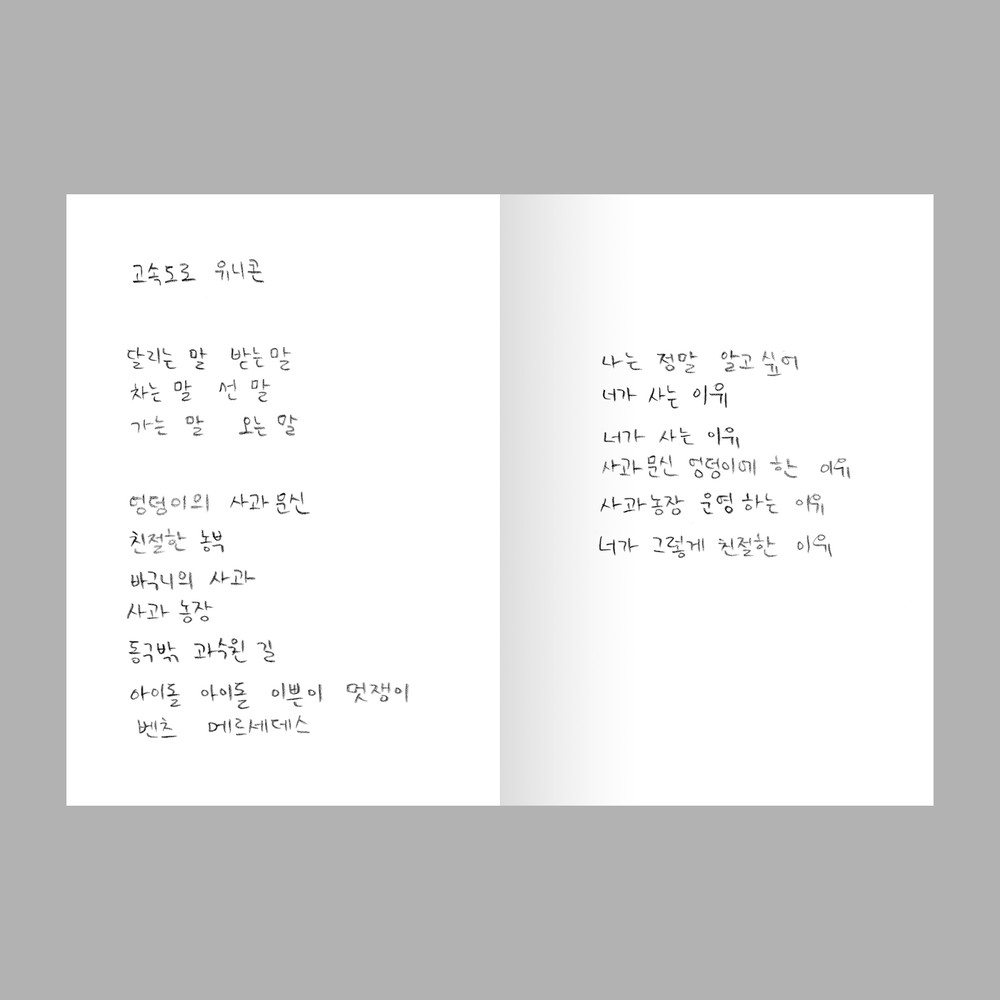 고속도로 유니콘
달리는 말 받는 말
차는 말 선 말
가는 말 오는 말
엉덩이의 사과 문신
친절한 농부
바구니의 사과
사과 농장
동구밖 과수원 길
아이돌 아이돌 이쁜이 멋쟁이
벤츠 메르세데스
나는 정말 알고 싶어
너가 사는 이유
너가 사는 이유
사과 문신 엉덩이에 한 이유
사과 농장 운영 하는 이유
너가 그렇게 친절한 이유